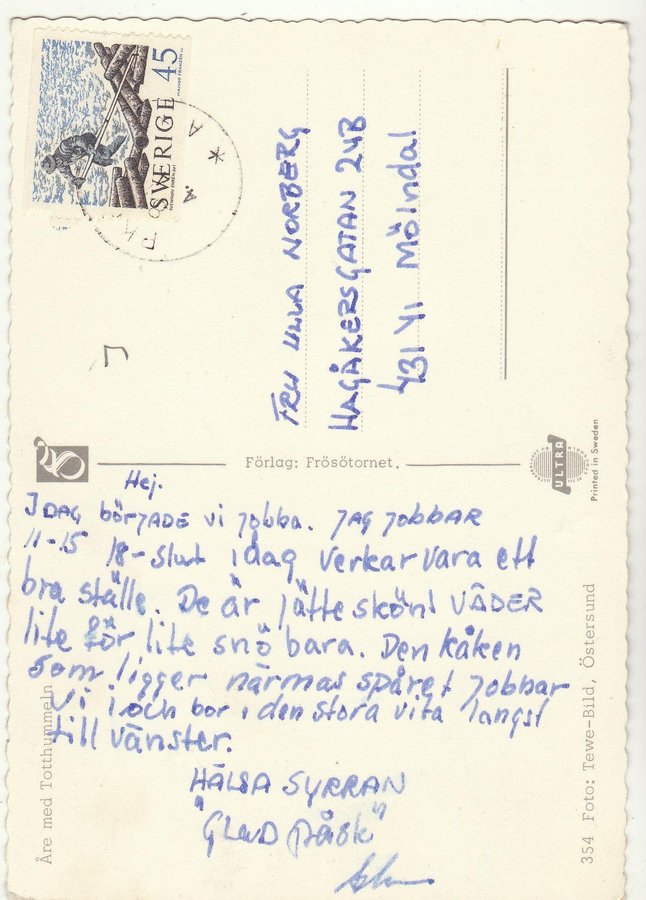 SVERIGE 45
FRU ULLA NORBERG
HAGÅKERSGATAN 24B
431 41 Mölndal
Förlag: Frösötornet.
ULTRA
Printed in Sweden
Hej.
IDAG BÖRJADE vi jobba. JAG JOBBAR
11-15 18-slut idag verkar vara ett
bra ställe. De är jätte skönt VÄDER
lite för lite snö bara. Den kåken
som ligger närmas spåret jobbar
vi i och bor i den stora vita längst
till vänster.
HÄLSA SYRRAN
"GLAD PÅSK"
Åre med Totthummeln
354 Foto: Tewe-Bild, Östersund